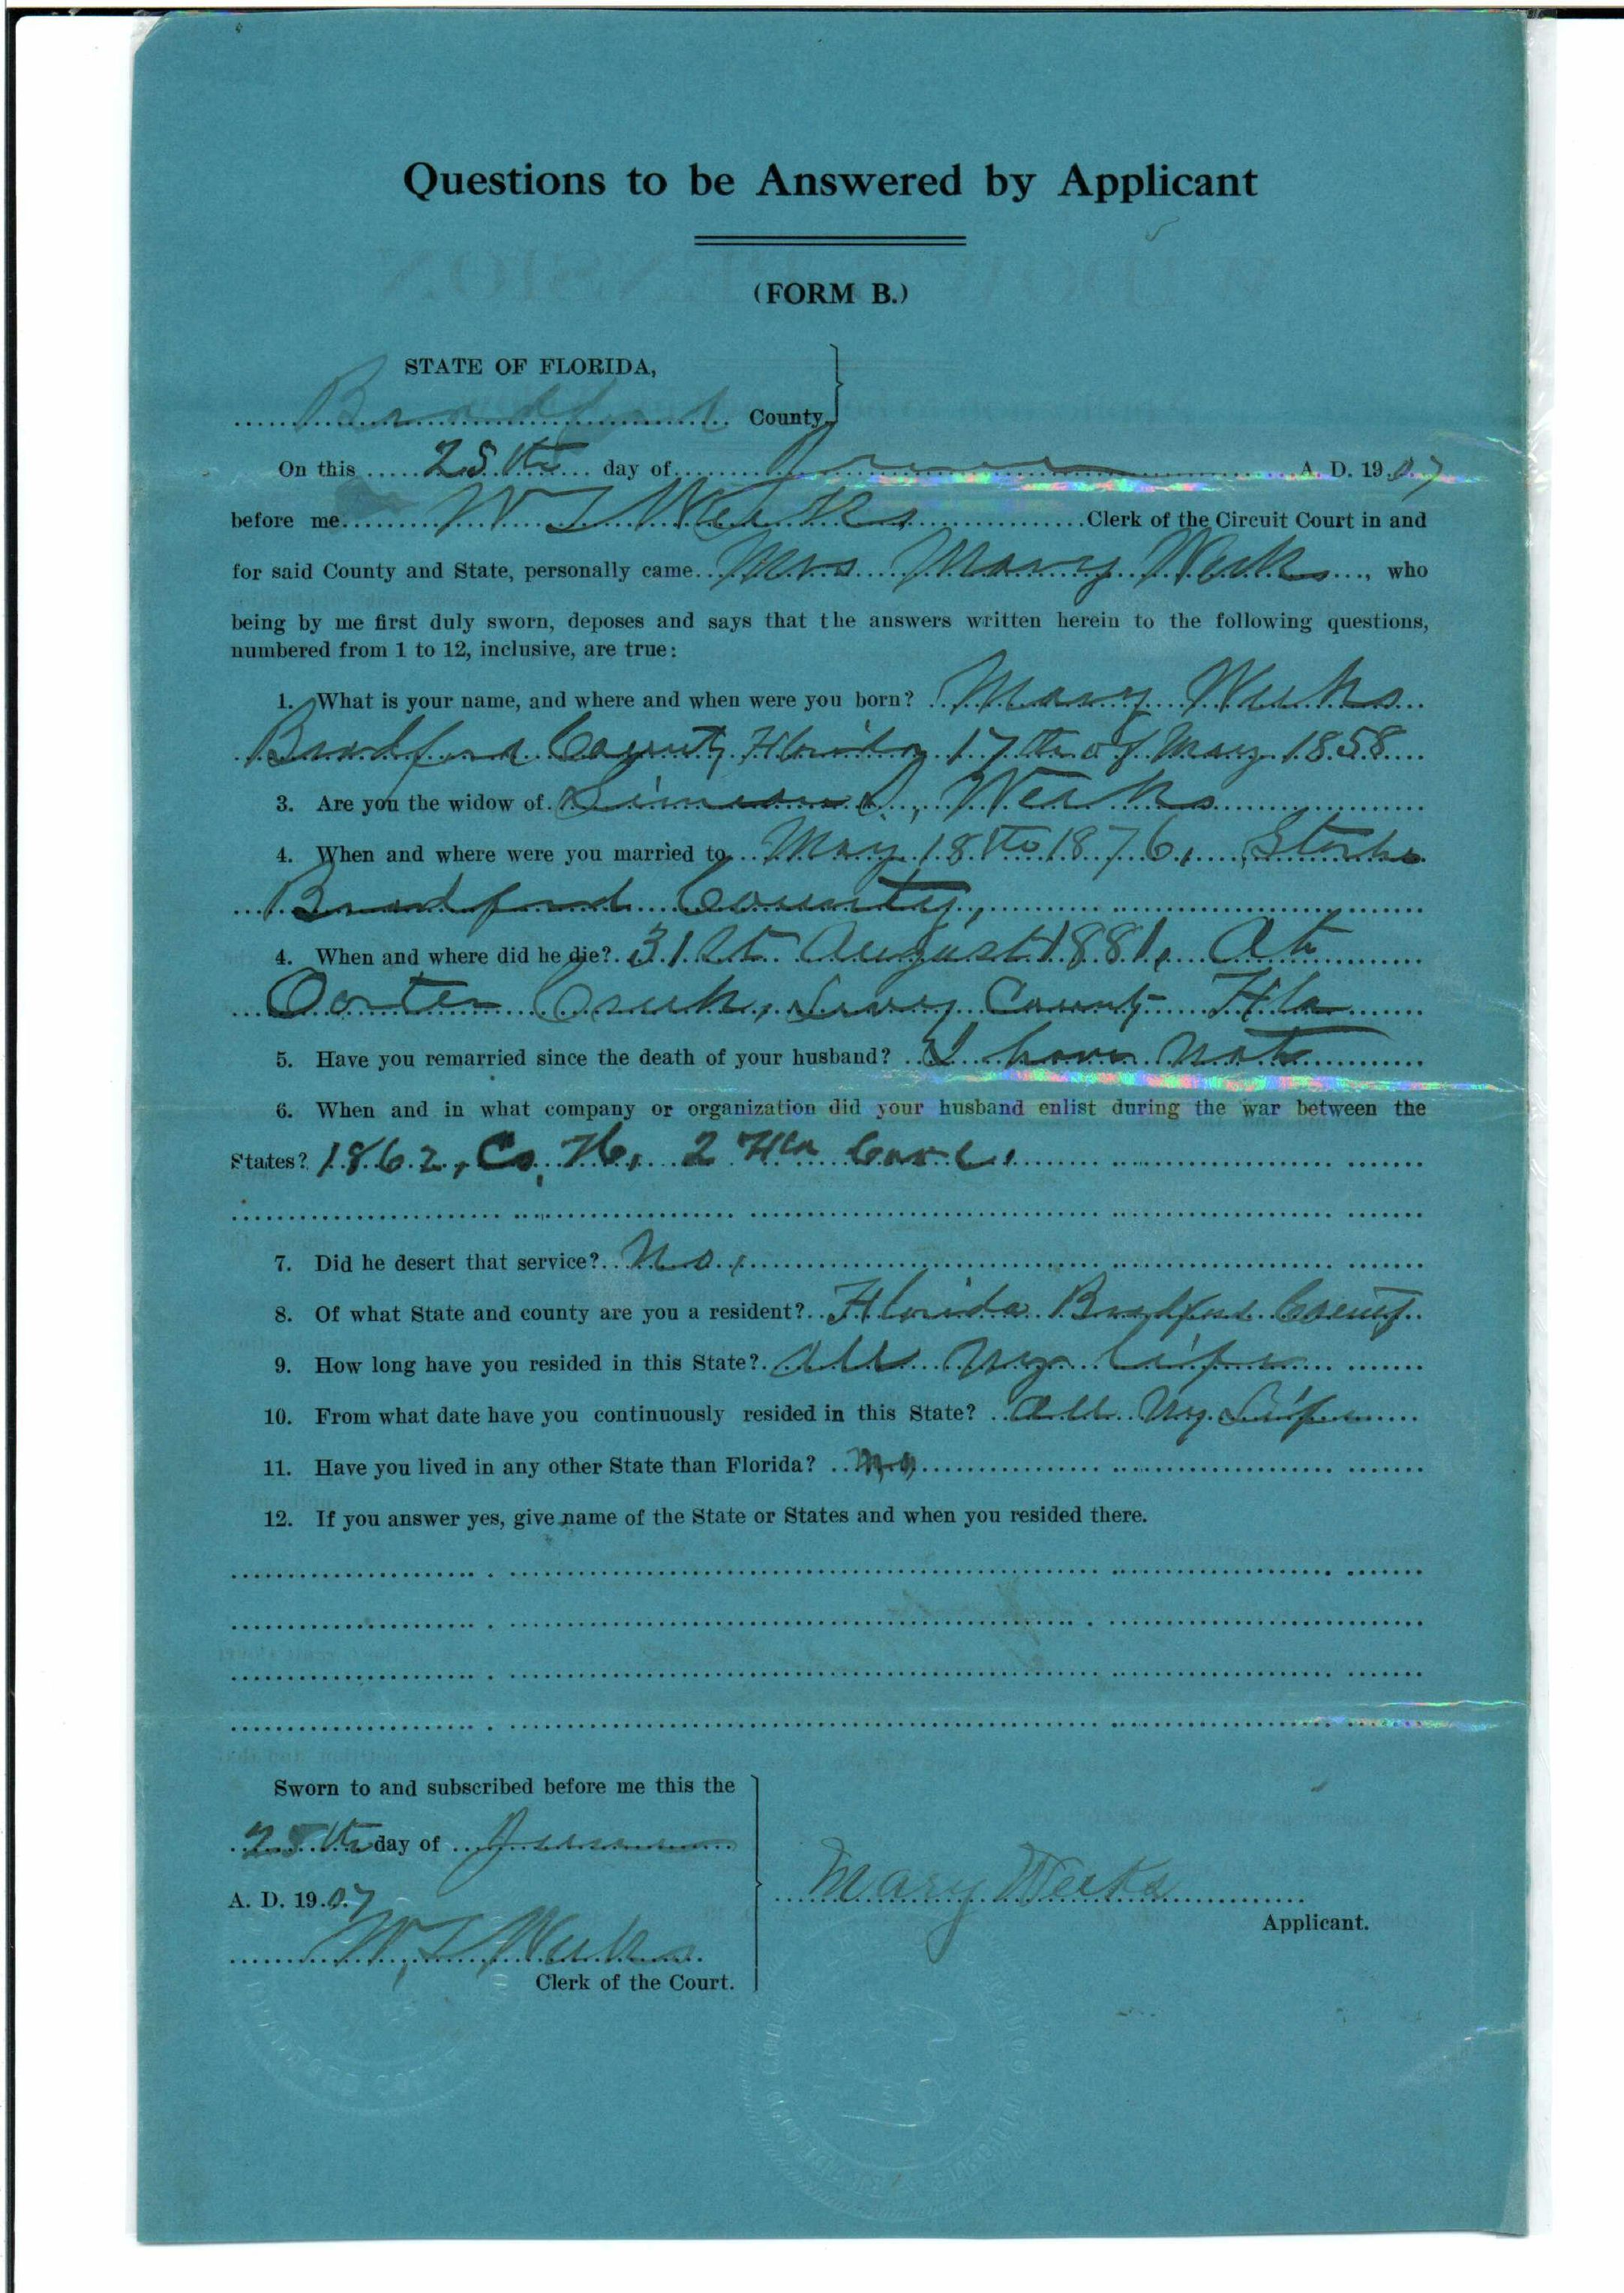 Questions to be Answered by Applicant
(FORM B.)
STATE OF FLORIDA,
Bradford County,
On this 25th day of June A. D. 1907
before me W I Weeks, Clerk of the Circuit Court in and
for said County and State, personally came Mrs Mary Weeks, who
being by me first duly sworn, deposes and says that the answers written herein to the following questions,
numbered from 1 to 12, inclusive, are true:
1. What is your name, and where and when were you born? Mary Weeks
Bradford County Florida 17th of May 1858
3. Are you the widow of Simeon J, Weeks
4. When and where were you married to May 18th 1876, Starke
Bradford County,
4. When and where did he die? 31st August 1881, At
Oorter Creek, Levy County Fla
5. Have you remarried since the death of your husband? I have not
6. When and in what company or organization did your husband enlist during the war between the
States? 1862, Co H, 2 Fla Cavl.
7. Did he desert that service? No,
8. Of what State and county are you a resident? Florida Bradford County
9. How long have you resided in this State? All my life
10. From what date have you continuously resided in this State? All my Life
11. Have you lived in any other State than Florida? No
12. If you answer yes, give name of the State or States and when you resided there.
Sworn to and subscribed before me this the
25th day of June
A. D. 1907
W I Weeks
Clerk of the Court.
Mary Weeks
Applicant.